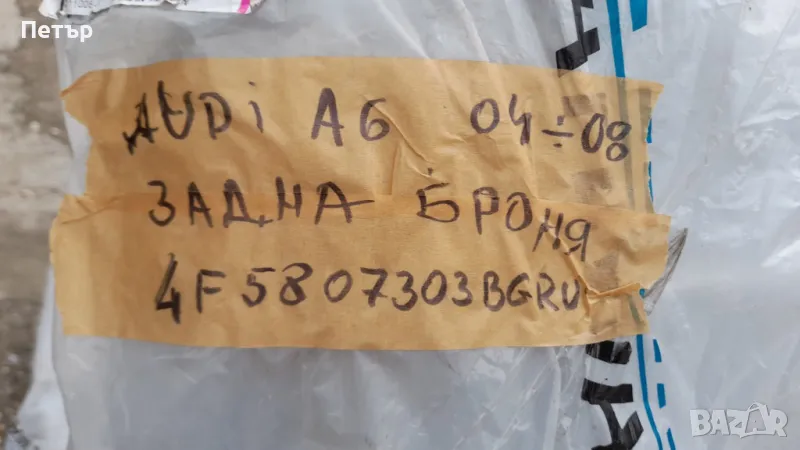 Петър
AUDi A6 04÷08
ЗАДНА БРОНЯ
4F5807303BGRU
BAZAR